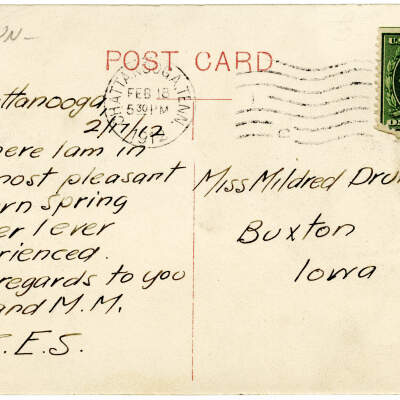 POST CARD
CHATTANOOGA, TENN.
FEB 18
530 PM
191
ttanooga
here I am in
most pleasant
rn Spring
er I ever
rienced.
regards to you
and M. M.
.E.S.
Miss Mildred Dru
Buxton
Iowa